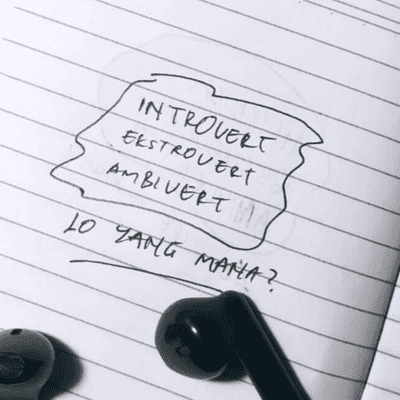 INTROVERT
EKSTROVERT
AMBIVERT
LO YANG MANA?